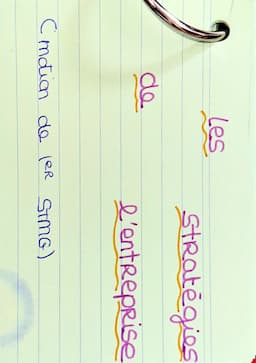 les stratégies
de l'entreprise
(motion de 1ER STMG)